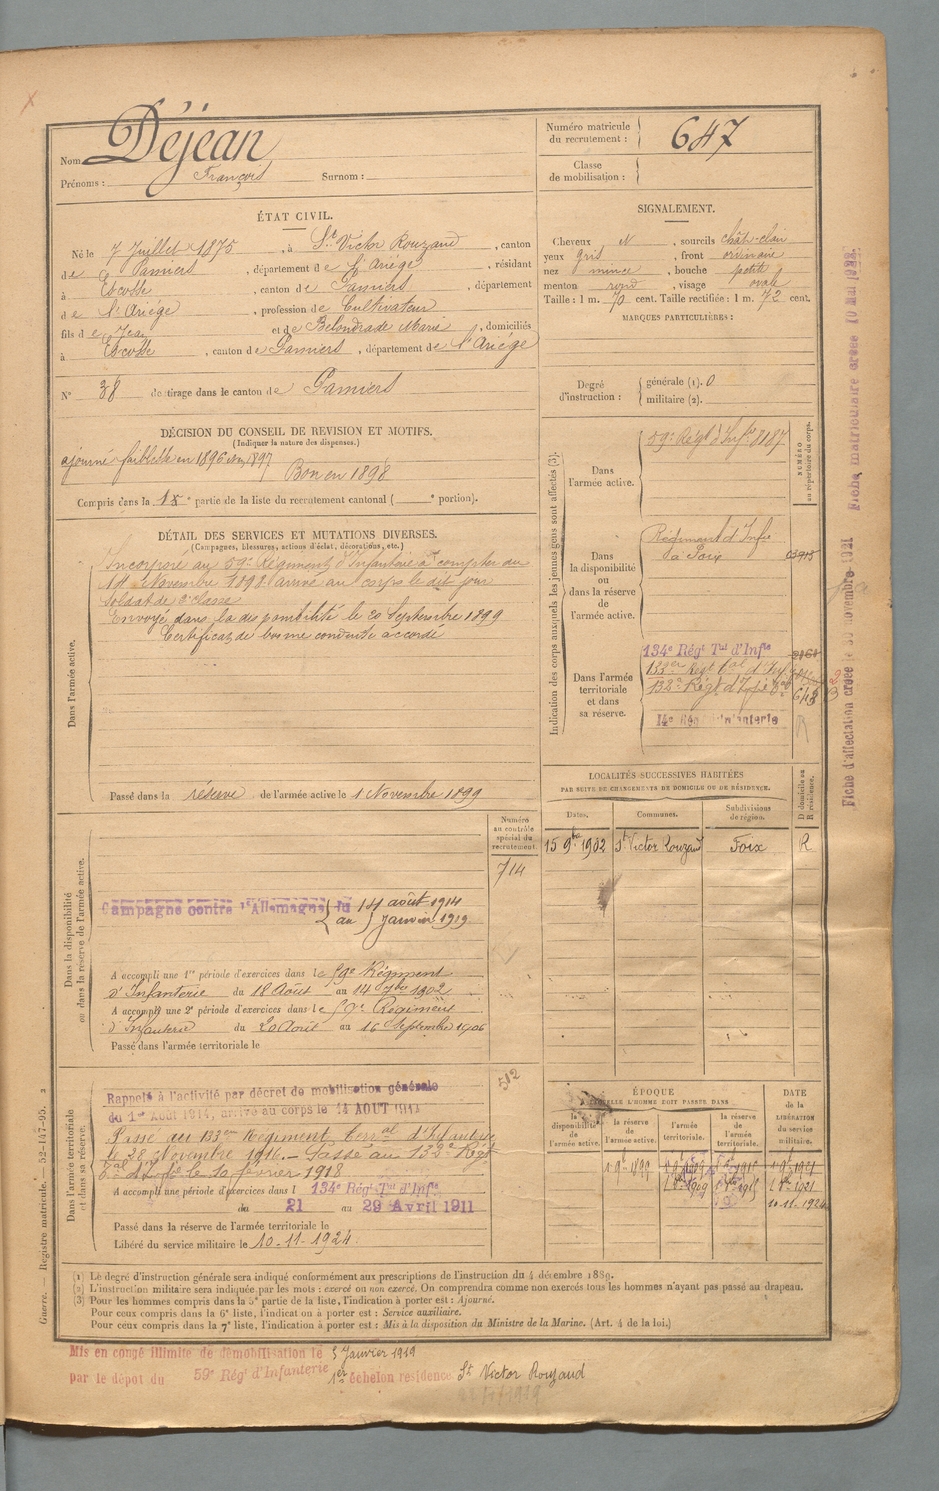 Nom Déjean
Prénoms : François Surnom :
Numéro matricule du recrutement : 647
Classe de mobilisation :
ÉTAT CIVIL.
Né le 7 Juillet 1875, à St Victor Rouzaud, canton
de Pamiers, département de l'Ariége, résidant
à Escosse, canton de Pamiers, département
de l'Ariége, profession de Cultivateur
fils de Jean et de Belondrade Marie, domiciliés
à Escosse, canton de Pamiers, département de l'Ariége
N° 38 de tirage dans le canton de Pamiers
SIGNALEMENT.
Cheveux N, sourcils chât-clair
yeux gris, front ordinaire
nez mince, bouche petite
menton rond, visage ovale
Taille : 1 m. 70 cent. Taille rectifiée : 1 m. 72 cent.
MARQUES PARTICULIÈRES :
Degré d'instruction : générale (1). 0
militaire (2).
DÉCISION DU CONSEIL DE REVISION ET MOTIFS.
(Indiquer la nature des dispenses.)
ajourné faiblesse en 1896 1897
Bon en 1898
Compris dans la 1re partie de la liste du recrutement cantonal ( e portion).
DÉTAIL DES SERVICES ET MUTATIONS DIVERSES.
(Campagnes, blessures, actions d'éclat, décorations, etc.)
Dans l'armée active.
Incorporé au 59e Régiment d'Infanterie à compter du
14 Novembre 1898 arrivé au corps le dit jour
soldat de 2e classe
Envoyé dans la disponibilité le 20 Septembre 1899
Certificat de bonne conduite accordé
Passé dans la réserve de l'armée active le 1 Novembre 1899
Indication des corps auxquels les jeunes gens sont affectés (3).
NUMÉRO au répertoire du corps.
Dans l'armée active.
59e Régt d'Infie 8187
Dans la disponibilité ou dans la réserve de l'armée active.
Régiment d'Infie
à Foix 03915
Dans l'armée territoriale et dans sa réserve.
134e Régt Tal d'Infie
133e Régt Tal d'Inf
132e Régt d'Infie Tal 648
14e Rég. d'Infanterie
Fiche d'affectation créée le 30 novembre 1921 Fiche matriculaire créée 10 Mai 1922
LOCALITÉS SUCCESSIVES HABITÉES
PAR SUITE DE CHANGEMENTS DE DOMICILE OU DE RÉSIDENCE.
Dates. Communes. Subdivisions de région. D domicile ou R résidence.
15 9bre 1902 St Victor Rouzaud Foix R
Dans la disponibilité ou dans la réserve de l'armée active.
Numéro au contrôle spécial du recrutement.
714
Campagne contre l'Allemagne du 14 août 1914
au 5 Janvier 1919
A accompli une 1re période d'exercices dans le 59e Régiment
d'Infanterie du 18 Août au 14 7bre 1902
A accompli une 2e période d'exercices dans le 59e Régiment
d'Infanterie du 20 Août au 16 Septembre 1906
Passé dans l'armée territoriale le
Dans l'armée territoriale et dans sa réserve.
502
Rappelé à l'activité par décret de mobilisation générale
du 1er Août 1914, arrivé au corps le 14 AOUT 1914
Passé au 133em Régiment Terral d'Infanterie
le 28 Novembre 1916. Passé au 132e Régt
Tal d'Infie le 10 février 1918
A accompli une période d'exercices dans l 134e Régt Tal d'Infie
du 21 au 29 Avril 1911
Passé dans la réserve de l'armée territoriale le
Libéré du service militaire le 10-11-1924
ÉPOQUE
A LAQUELLE L'HOMME DOIT PASSER DANS
la disponibilité de l'armée active. la réserve de l'armée active. l'armée territoriale. la réserve de l'armée territoriale. DATE de la LIBÉRATION du service militaire.
1 9bre 1899 1 9bre 1909 1 9bre 1915 1 9bre 1921
1909 1915 1921
10-11-1924
(1) Le degré d'instruction générale sera indiqué conformément aux prescriptions de l'instruction du 4 décembre 1889.
(2) L'instruction militaire sera indiquée par les mots : exercé ou non exercé. On comprendra comme non exercés tous les hommes n'ayant pas passé au drapeau.
(3) Pour les hommes compris dans la 5e partie de la liste, l'indication à porter est : Ajourné.
Pour ceux compris dans la 6e liste, l'indication à porter est : Service auxiliaire.
Pour ceux compris dans la 7e liste, l'indication à porter est : Mis à la disposition du Ministre de la Marine. (Art. 4 de la loi.)
Guerre. — Registre matricule. — 52-147-95.
Mis en congé illimité de démobilisation le 5 Janvier 1919
par le dépôt du 59e Rég' d'Infanterie 1er échelon résidence St Victor Rouzaud